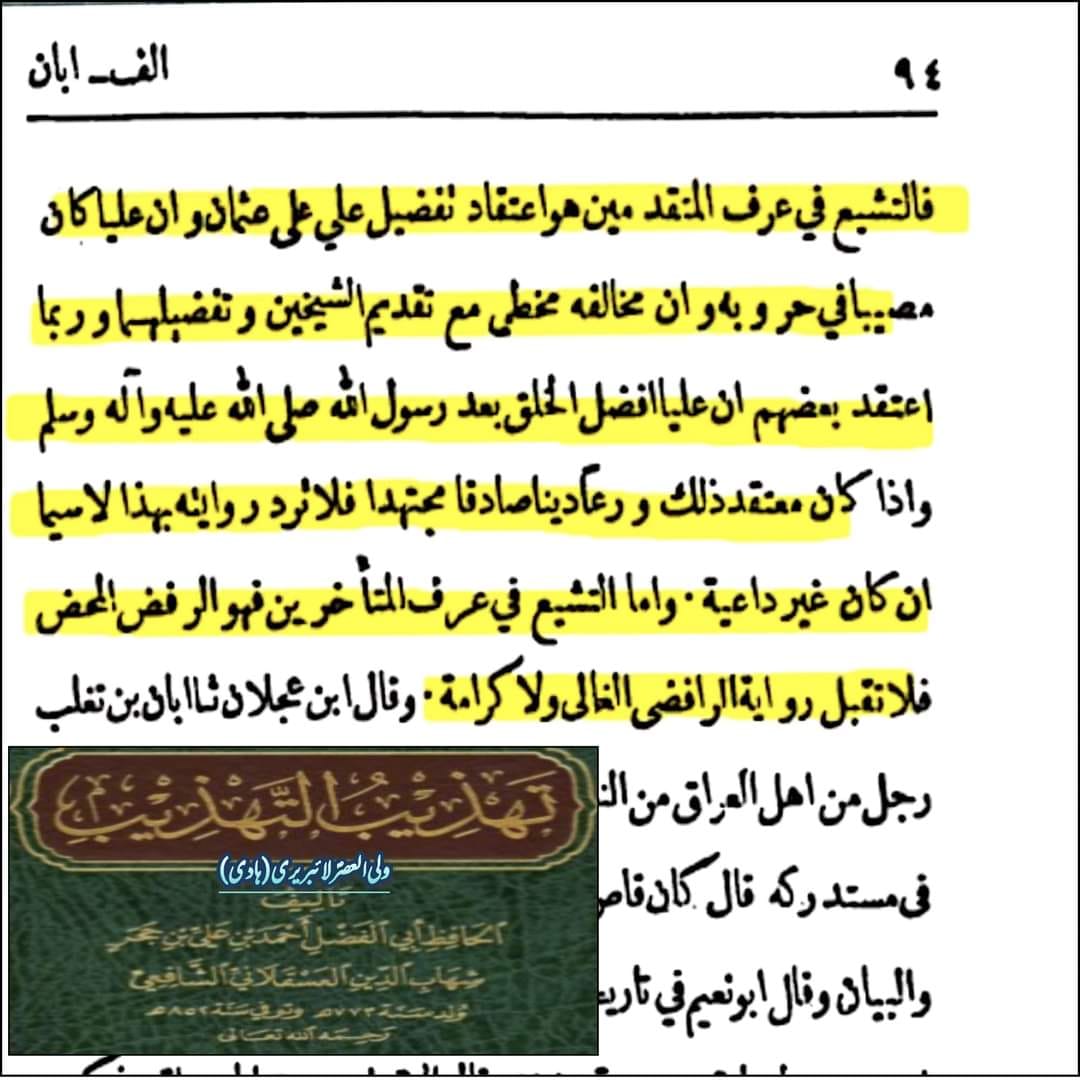 ٩٤
الف ـ ابان
فالتشيع في عرف المتقدمين هو اعتقاد تفضيل علي على عثمان و ان عليا كان
مصيبا في حروبه و ان مخالفه مخطي مع تقديم الشيخين و تفضيلهما و ربما
اعتقد بعضهم ان عليا افضل الخلق بعد رسول الله صلى الله عليه وآله وسلم
واذا كان معتقد ذلك ورعا دينا صادقا مجتهدا فلا ترد روايته بهذا لاسيما
ان كان غير داعية ٠ واما التشيع في عرف المتأخرين فهو الرفض المحض
فلا تقبل رواية الرافضى الغالى ولا كرامة ٠ وقال ابن عجلان ثنا ابان بن تغلب
رجل من اهل العراق من
فى مستدركه قال كان
والبيان وقال ابو نعيم في
تَهذِيبُ التَّهذِيبِ
ولی العصر لائبریری (ہادی)
تأليف
الحافظ أبي الفضل أحمد بن علي بن حجر
شهاب الدين العسقلاني الشافعي
ولد سنة ٧٧٣هـ وتوفي سنة ٨٥٢هـ
رحمه الله تعالى